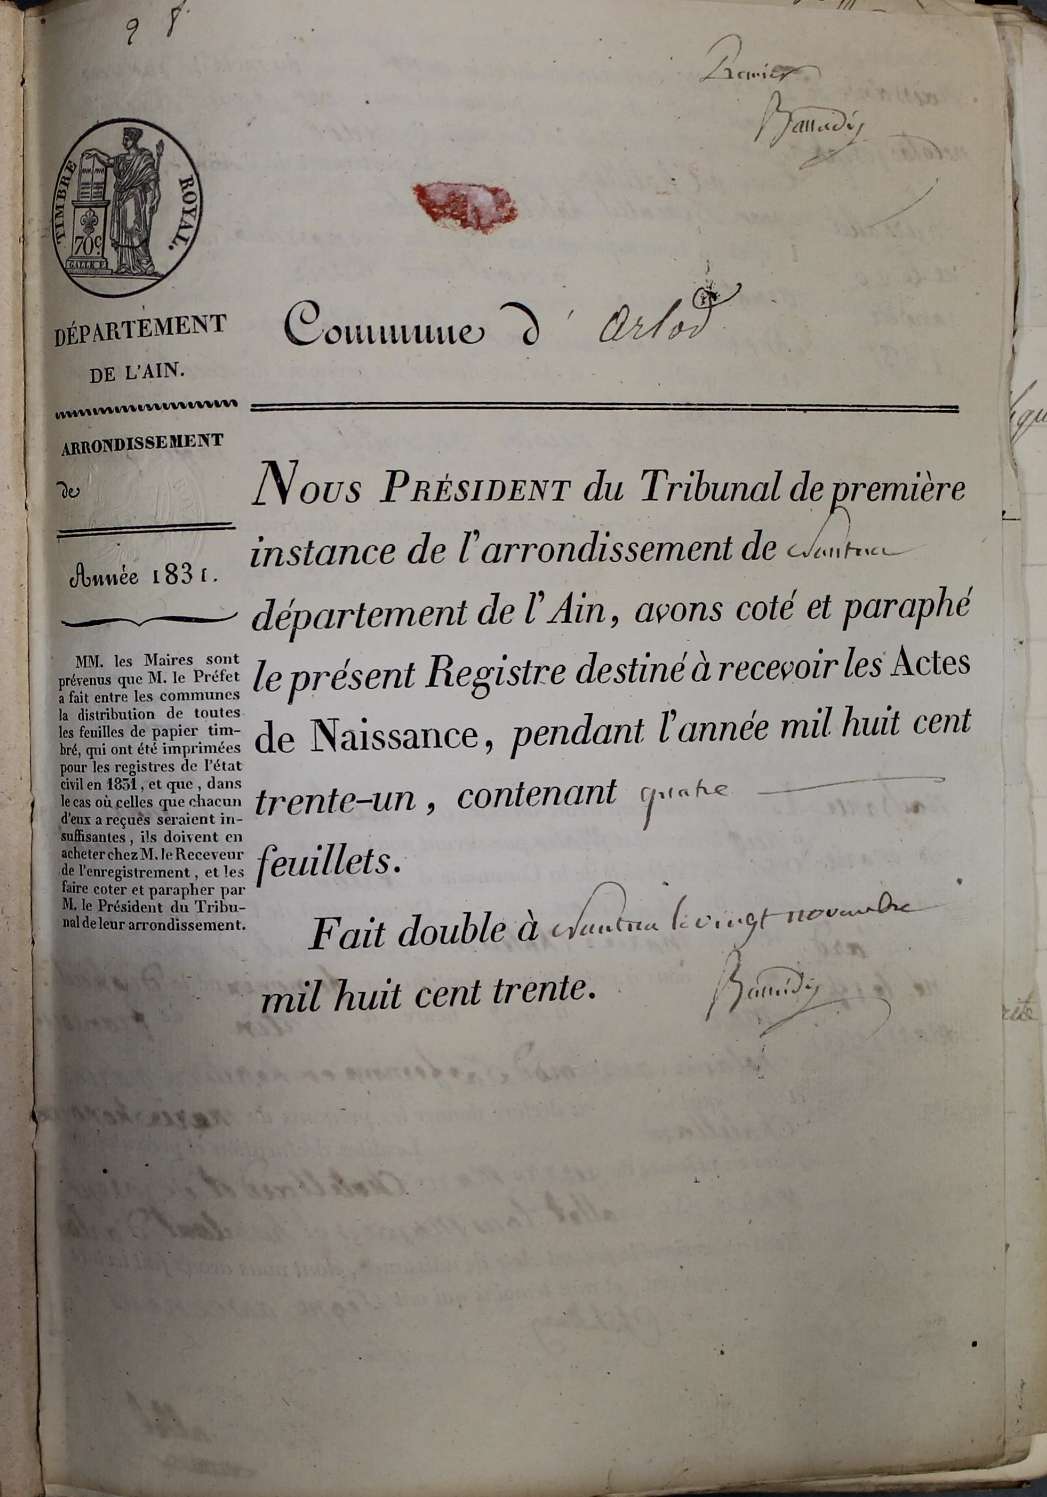 9 8
Premier
TIMBRE ROYAL.
70c.
DÉPARTEMENT
DE L'AIN.
Commune d' Arlod
ARRONDISSEMENT
de
Année 1831.
MM. les Maires sont
prévenus que M. le Préfet
a fait entre les communes
la distribution de toutes
les feuilles de papier tim-
bré, qui ont été imprimées
pour les registres de l'état
civil en 1831, et que, dans
le cas où celles que chacun
d'eux a reçues seraient in-
suffisantes, ils doivent en
acheter chez M. le Receveur
de l'enregistrement, et les
faire coter et parapher par
M. le Président du Tribu-
nal de leur arrondissement.
NOUS PRÉSIDENT du Tribunal de première
instance de l'arrondissement de Nantua
département de l'Ain, avons coté et paraphé
le présent Registre destiné à recevoir les Actes
de Naissance, pendant l'année mil huit cent
trente-un, contenant quatre
feuillets.
Fait double à Nantua le vingt novembre
mil huit cent trente.